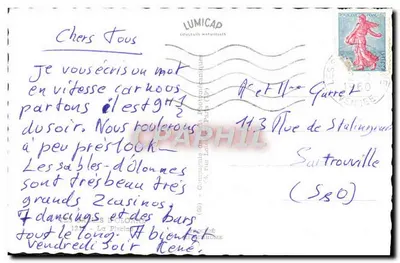 LUMICAP
Chers Tous
Je vous écris un mot
en vitesse car nous
partons il est 9H ½
du soir. Nous roulerons
à peu près 100K—
Les sables-d'Olonnes
sont très beau très
grands 2 casinos,
7 dancings et des bars
tout le long. A bientôt
vendredi soir René.
et Mme Garret
113 Rue de Stalingrad
Sartrouville
(S&O)
CPAPHIL